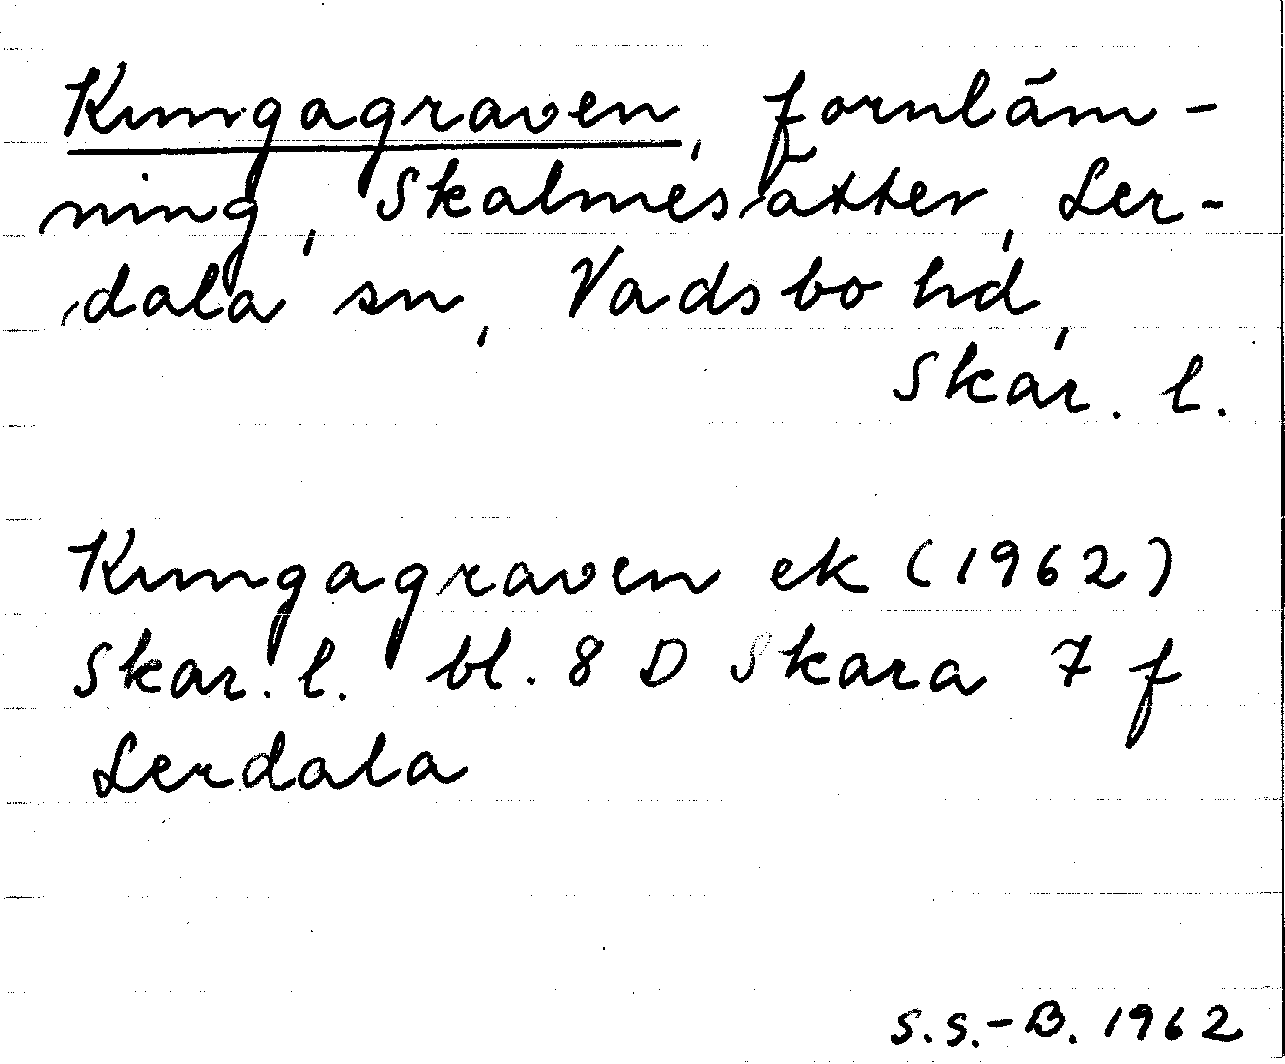 Kungagraven, fornläm-
ning, Skalmesätter, Ler-
dala sn, Vadsbo hd,
Skar. l.
Kungagraven ek (1962)
Skar. l. bl. 8 D Skara 7 f
Lerdala
S.S.-B. 1962